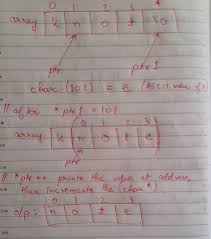 0 1 2 3 4
array k n o t s
ptr ptr1
char (101) = e (ASCII value of
// after *ptr1 = 101
0 1 2 3 4
array k n o t e
ptr
// *ptr++ prints the value at address,
then increments the (char *)
0 1 2 3
o/p: n o t e